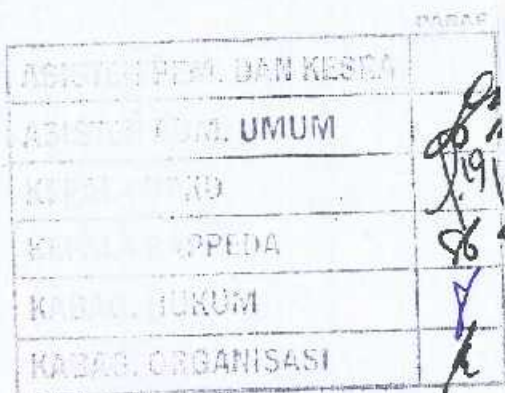 PARAF
ASISTEN PEM. DAN KESRA
ASISTEN ADM. UMUM
KEPALA
KEPALA BAPPEDA
KABAG. HUKUM
KABAG. ORGANISASI